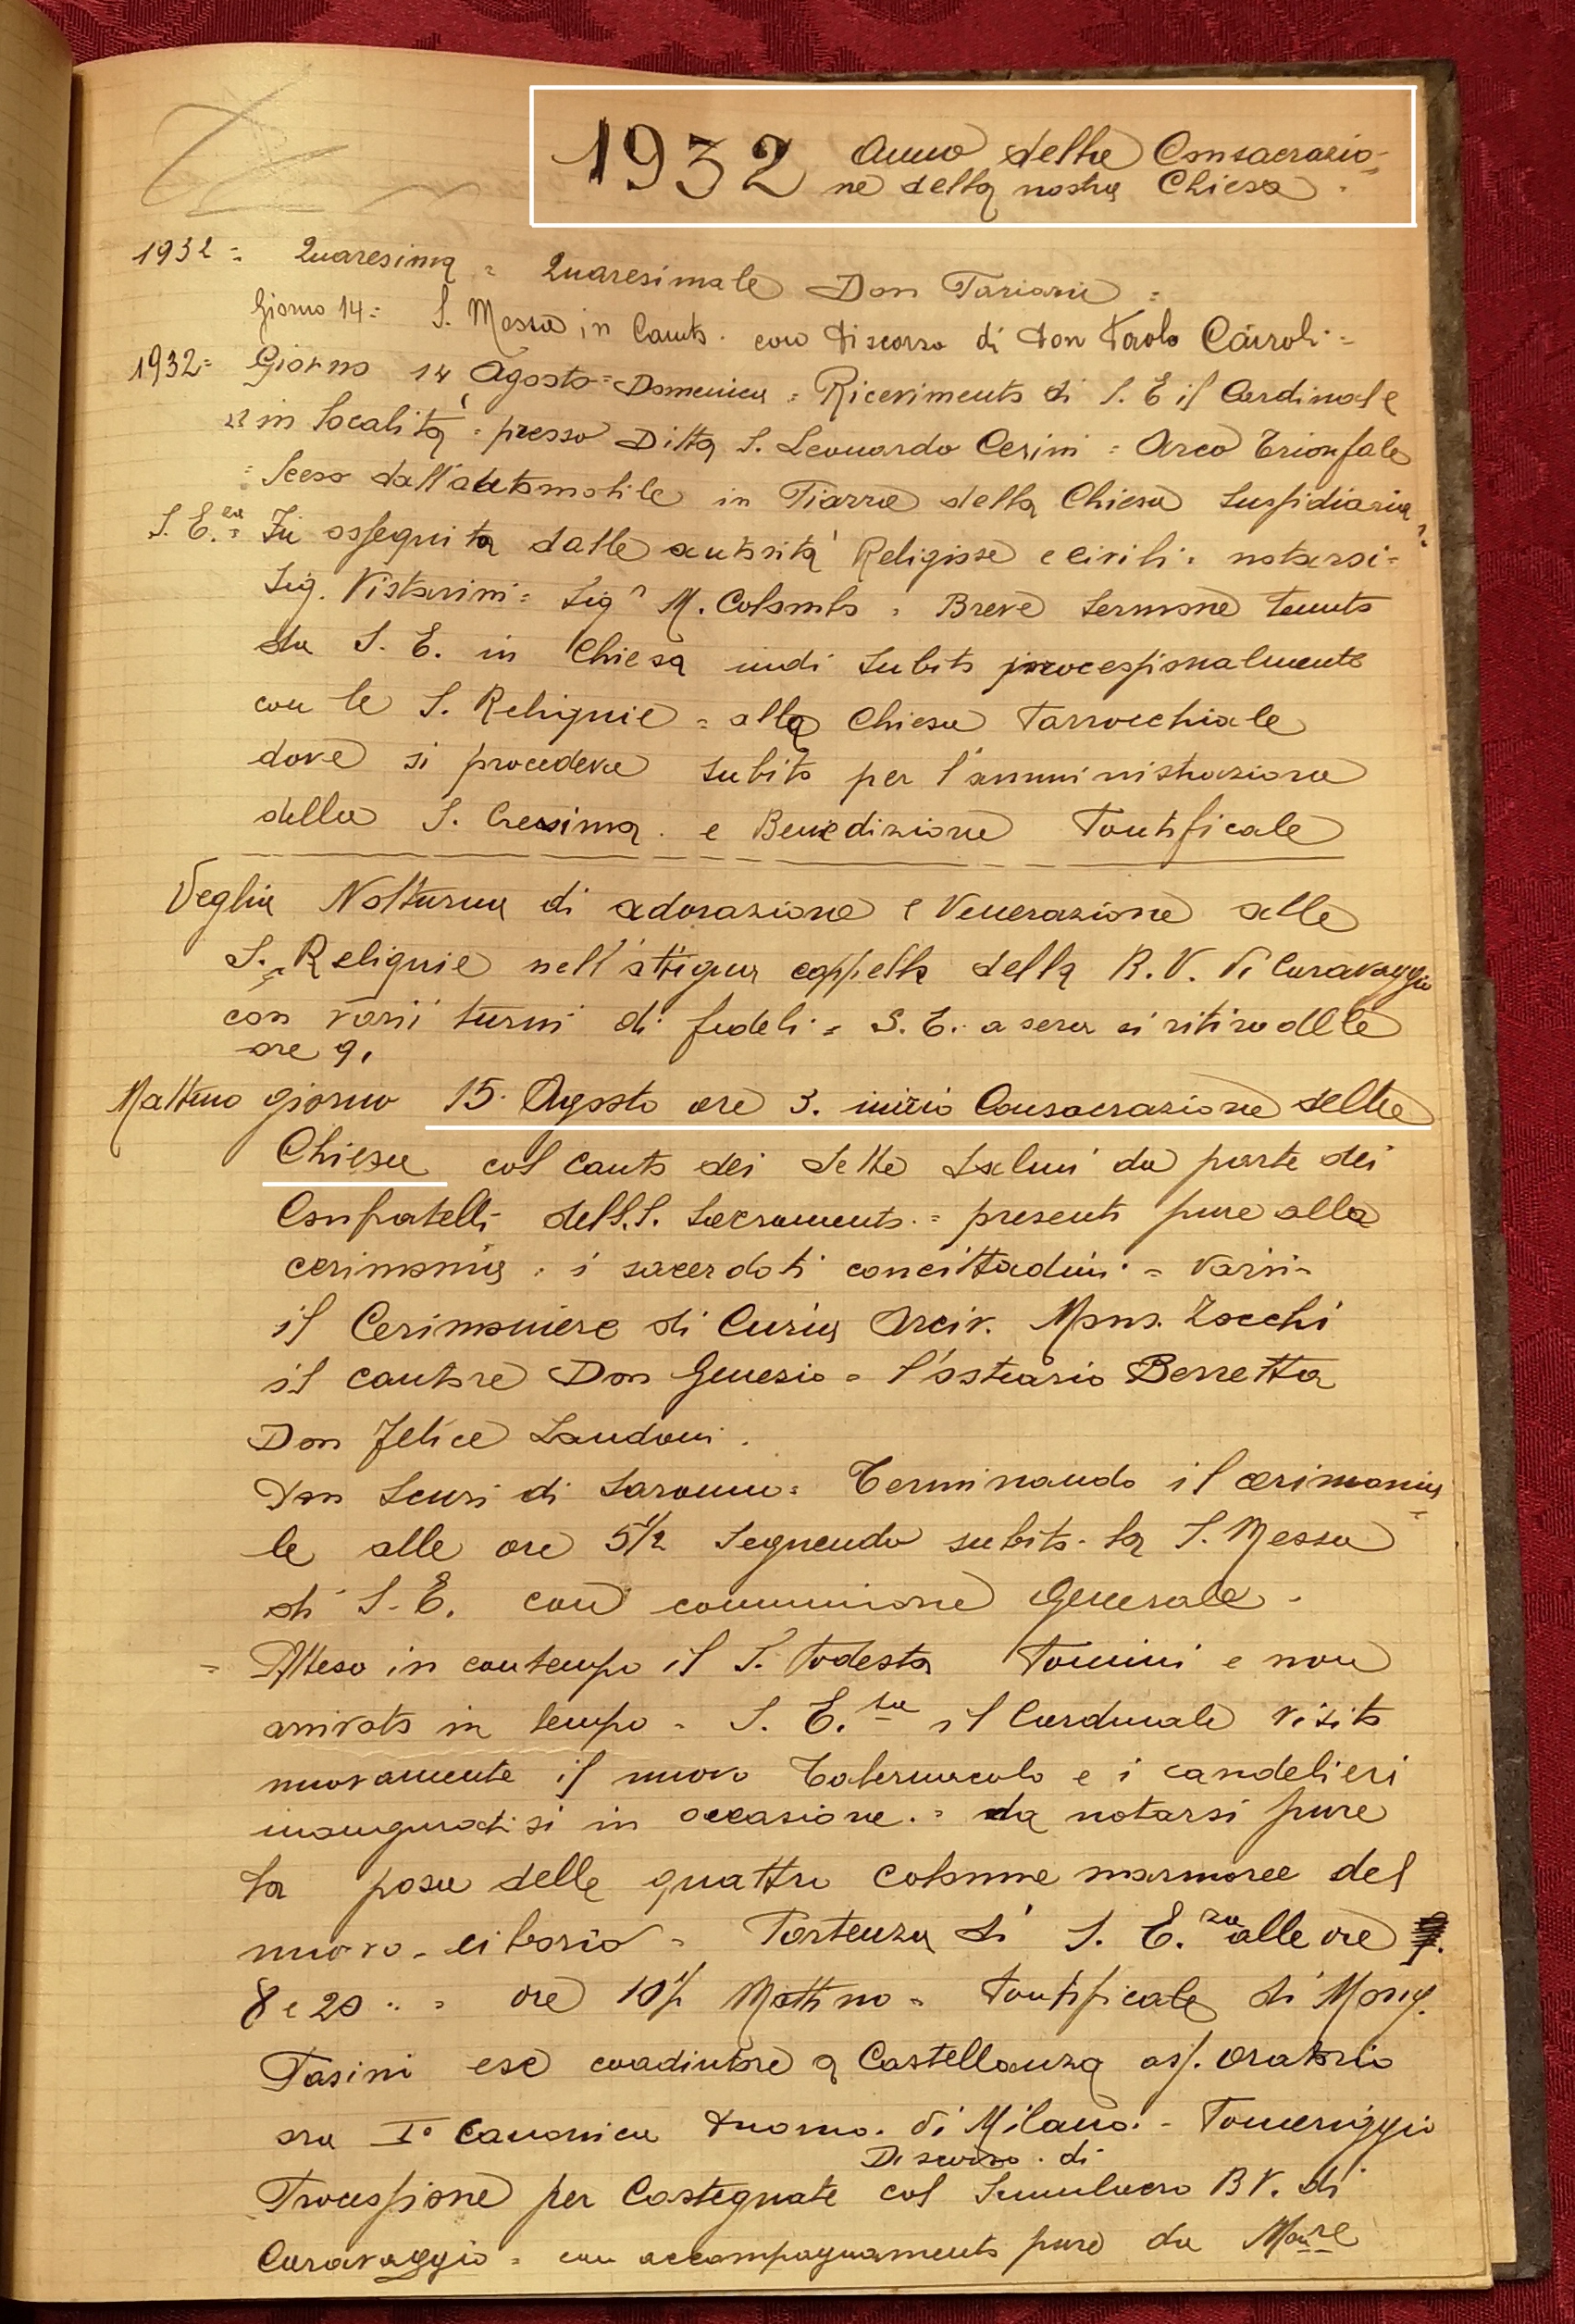 1932 Anno della Consacrazio-
ne della nostra Chiesa.
1932 = Quaresima = Quaresimale Don
Giorno 14 = S. Messa in Canto. con discorso di Don Paolo Cairoli =
1932 = Giorno 14 Agosto = Domenica = Ricevimento di S. E il Cardinale
in località = presso Ditta S. Leonardo Cerini = Arco Trionfale
= Sceso dall'automobile in Piazza della Chiesa Sussidiaria
S. E. Fu ossequita dalle autorità Religiose e civili: notarsi =
Sig. Vistarini = Sig M. Colombo = Breve Sermone tenuto
da S. E. in Chiesa indi subito processionalmente
con le S. Reliquie = alla Chiesa Parrocchiale
dove si procedeva subito per l'amministrazione
della S. Cresima. e Benedizione Pontificale
Veglia Notturna di adorazione e Venerazione alle
S. Reliquie nell'attigua cappella della B. V. di Caravaggio
con varii turni di fedeli = S. E. a sera si ritirò alle
ore 9.
Mattino giorno 15. Agosto ore 3. inizio Consacrazione della
Chiesa col canto dei Sette Salmi da parte dei
Confratelli del S.S. Sacramento. = presenti pure alla
cerimonia: i sacerdoti concittadini = Varii =
il Cerimoniere di Curia Arciv. Mons. Zocchi
il cantore Don Genesio = l'ostiario Berretta
Don Felice Landoni.
Don Scuri di Saronno = Terminando il cerimonia
le alle ore 5 1/2 Seguendo subito la S. Messa
di S. E. con comunione Generale.
= Atteso in contempo il S. Podestà Tomini e non
arrivato in tempo = S. E. il Cardinale visitò
nuovamente il nuovo Tabernacolo e i candelieri
inauguratisi in occasione. = da notarsi pure
la posa delle quattro colonne marmoree del
nuovo ciborio = Partenza di S. E.za alle ore
8 e 20 = ore 10 1/2 Mattino = Pontificale di Mons.
Pasini ese coadiutore a Castellanza ass. Oratorio
ora I° Canonico Duomo. di Milano. = Pomeriggio
Discorso di
Processione per Castegnate col Simulacro B V. di
Caravaggio = con accompagnamento pure da